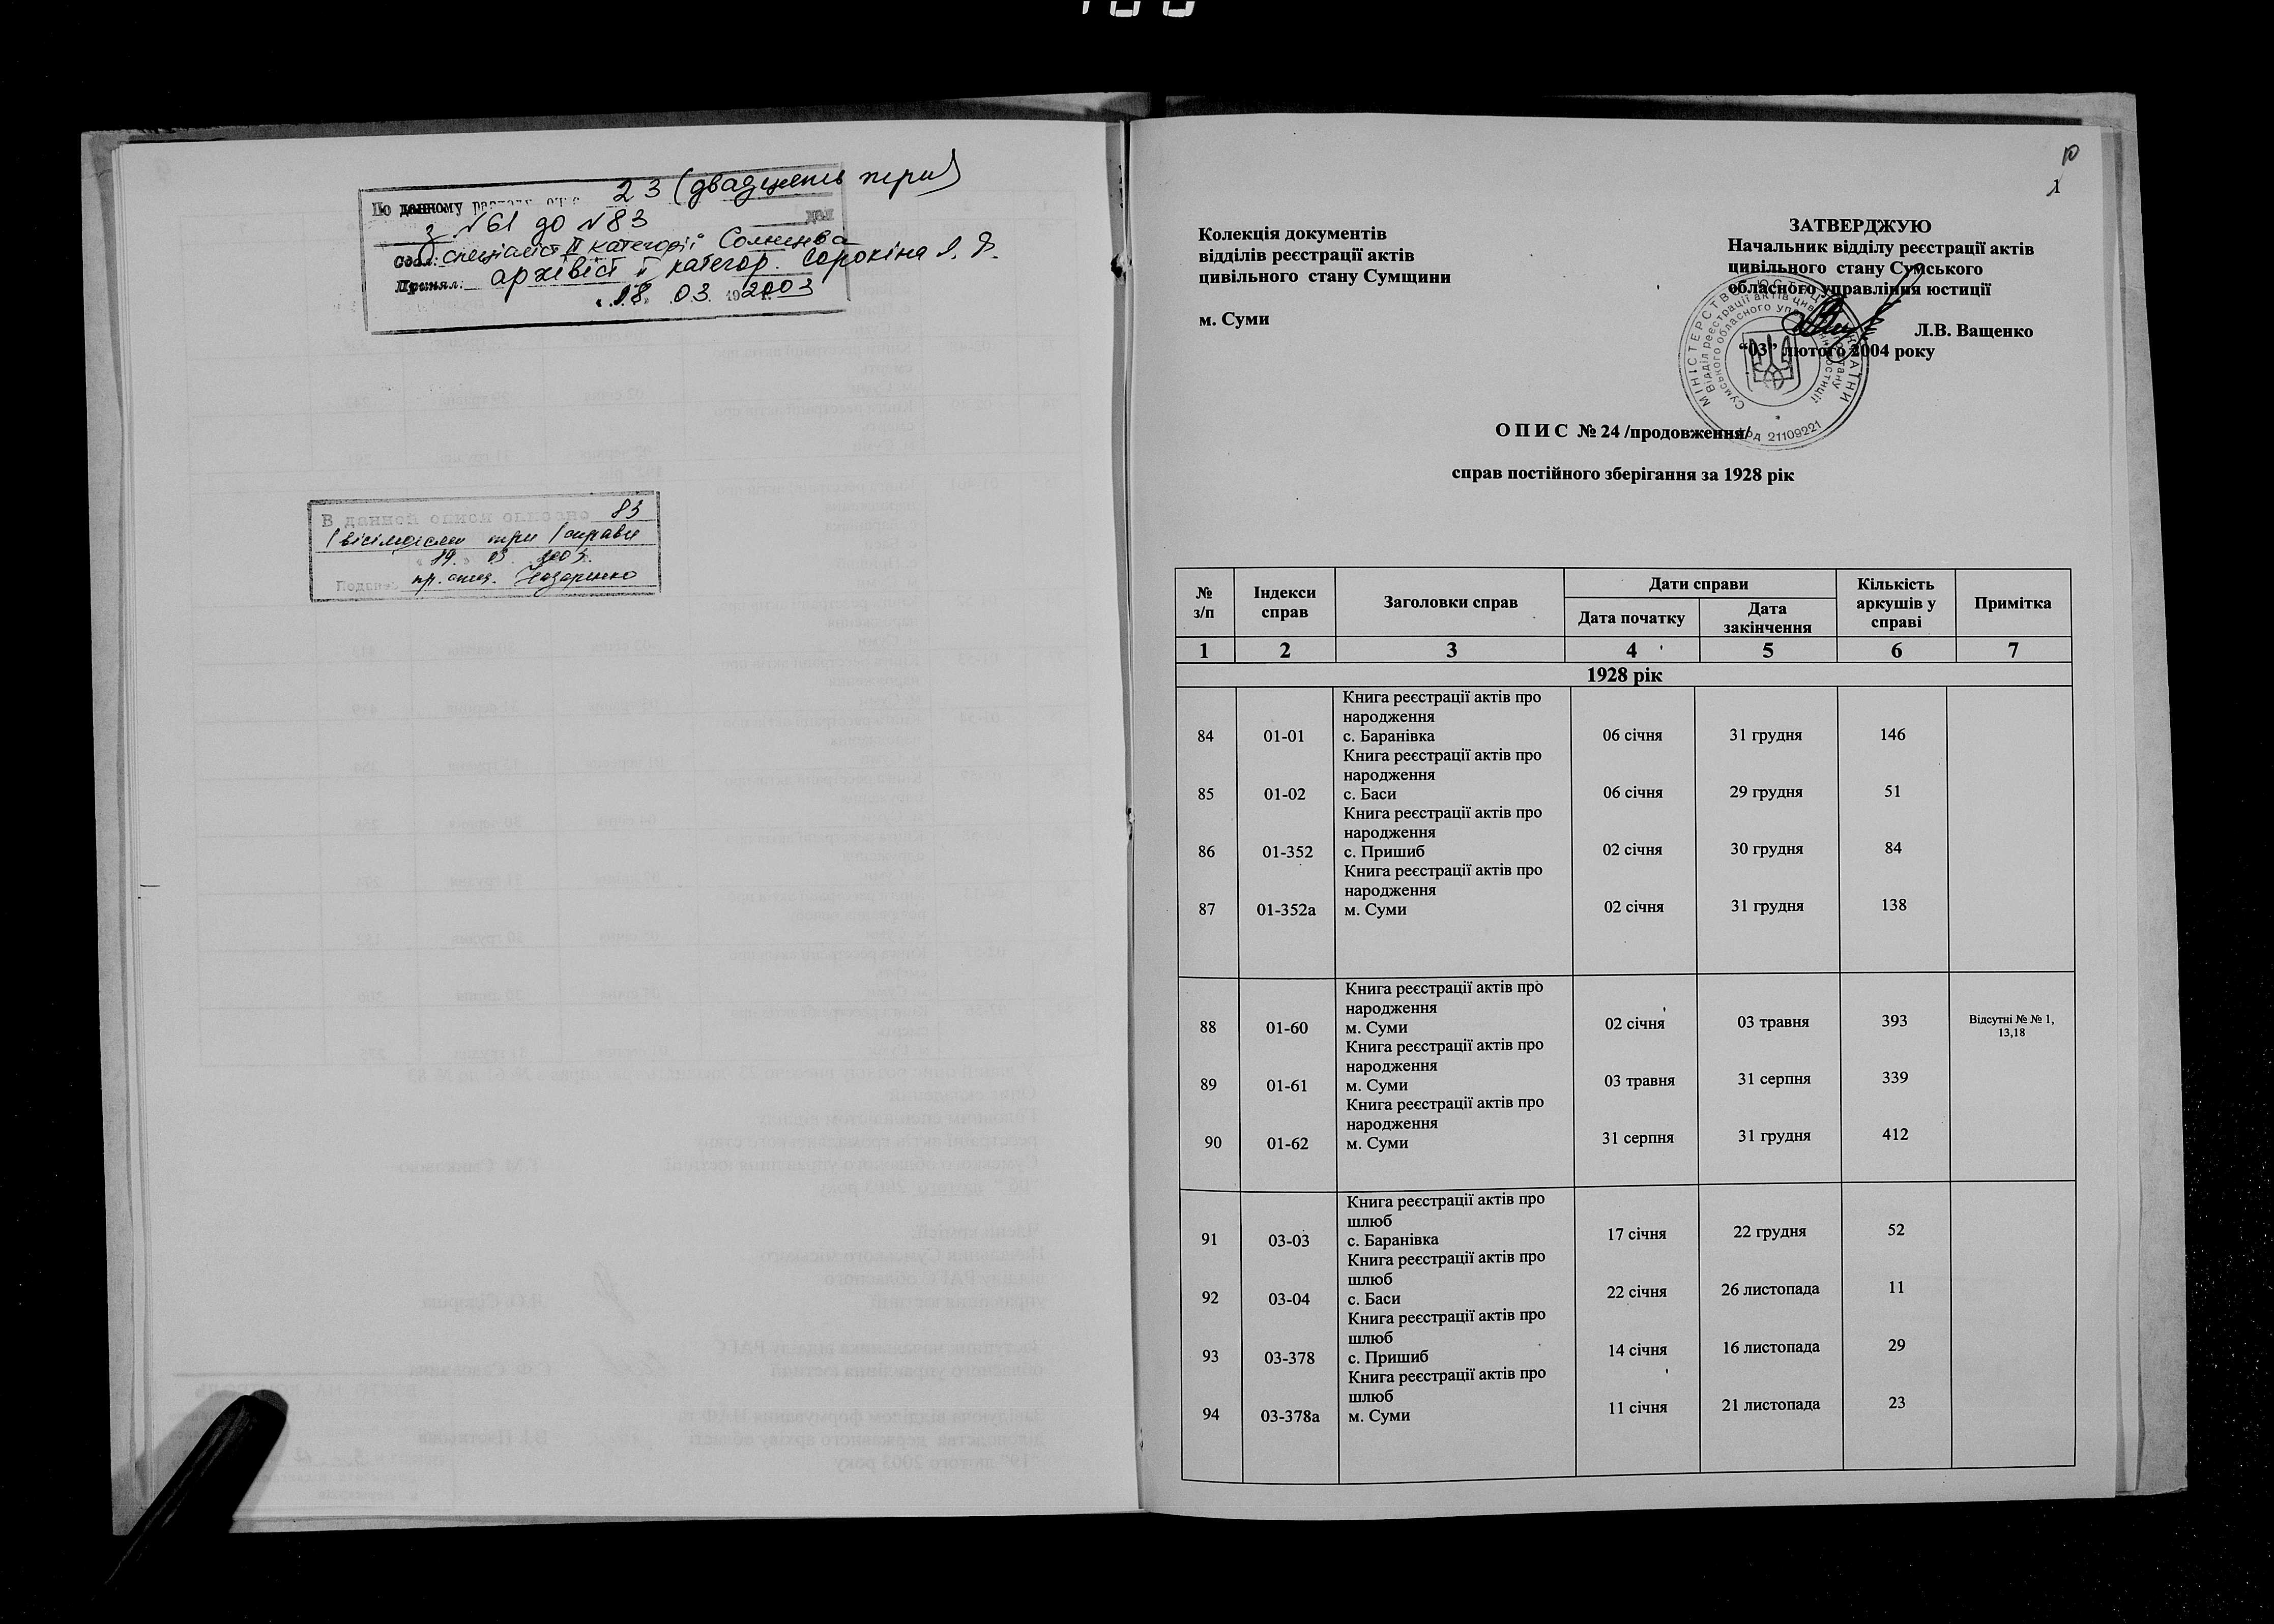 По данному 23 (двадцять три)
з №61 до №83
Сдал: спеціаліст II категорії Солнцева
Принял: архівіст II категор. Сорокіна
"18" 03. 2003
В данной описи описано 83
/вісімдесят три/ справи
"19" 03 2003.
Назаренко
10
1
Колекція документів
відділів реєстрації актів
цивільного стану Сумщини
м. Суми
ЗАТВЕРДЖУЮ
Начальник відділу реєстрації актів
цивільного стану Сумського
обласного управління юстиції
Л.В. Ващенко
“03” лютого 2004 року
О П И С № 24 /продовження/
справ постійного зберігання за 1928 рік
№ з/п Індекси справ Заголовки справ Дати справи Кількість аркушів у справі Примітка
Дата початку Дата закінчення
1 2 3 4 5 6 7
1928 рік
Книга реєстрації актів про
народження
84 01-01 с. Баранівка 06 січня 31 грудня 146
Книга реєстрації актів про
народження
85 01-02 с. Баси 06 січня 29 грудня 51
Книга реєстрації актів про
народження
86 01-352 с. Пришиб 02 січня 30 грудня 84
Книга реєстрації актів про
народження
87 01-352а м. Суми 02 січня 31 грудня 138
Книга реєстрації актів про
народження
88 01-60 м. Суми 02 січня 03 травня 393 Відсутні № № 1, 13,18
Книга реєстрації актів про
народження
89 01-61 м. Суми 03 травня 31 серпня 339
Книга реєстрації актів про
народження
90 01-62 м. Суми 31 серпня 31 грудня 412
Книга реєстрації актів про
шлюб
91 03-03 с. Баранівка 17 січня 22 грудня 52
Книга реєстрації актів про
шлюб
92 03-04 с. Баси 22 січня 26 листопада 11
Книга реєстрації актів про
шлюб
93 03-378 с. Пришиб 14 січня 16 листопада 29
Книга реєстрації актів про
шлюб
94 03-378а м. Суми 11 січня 21 листопада 23